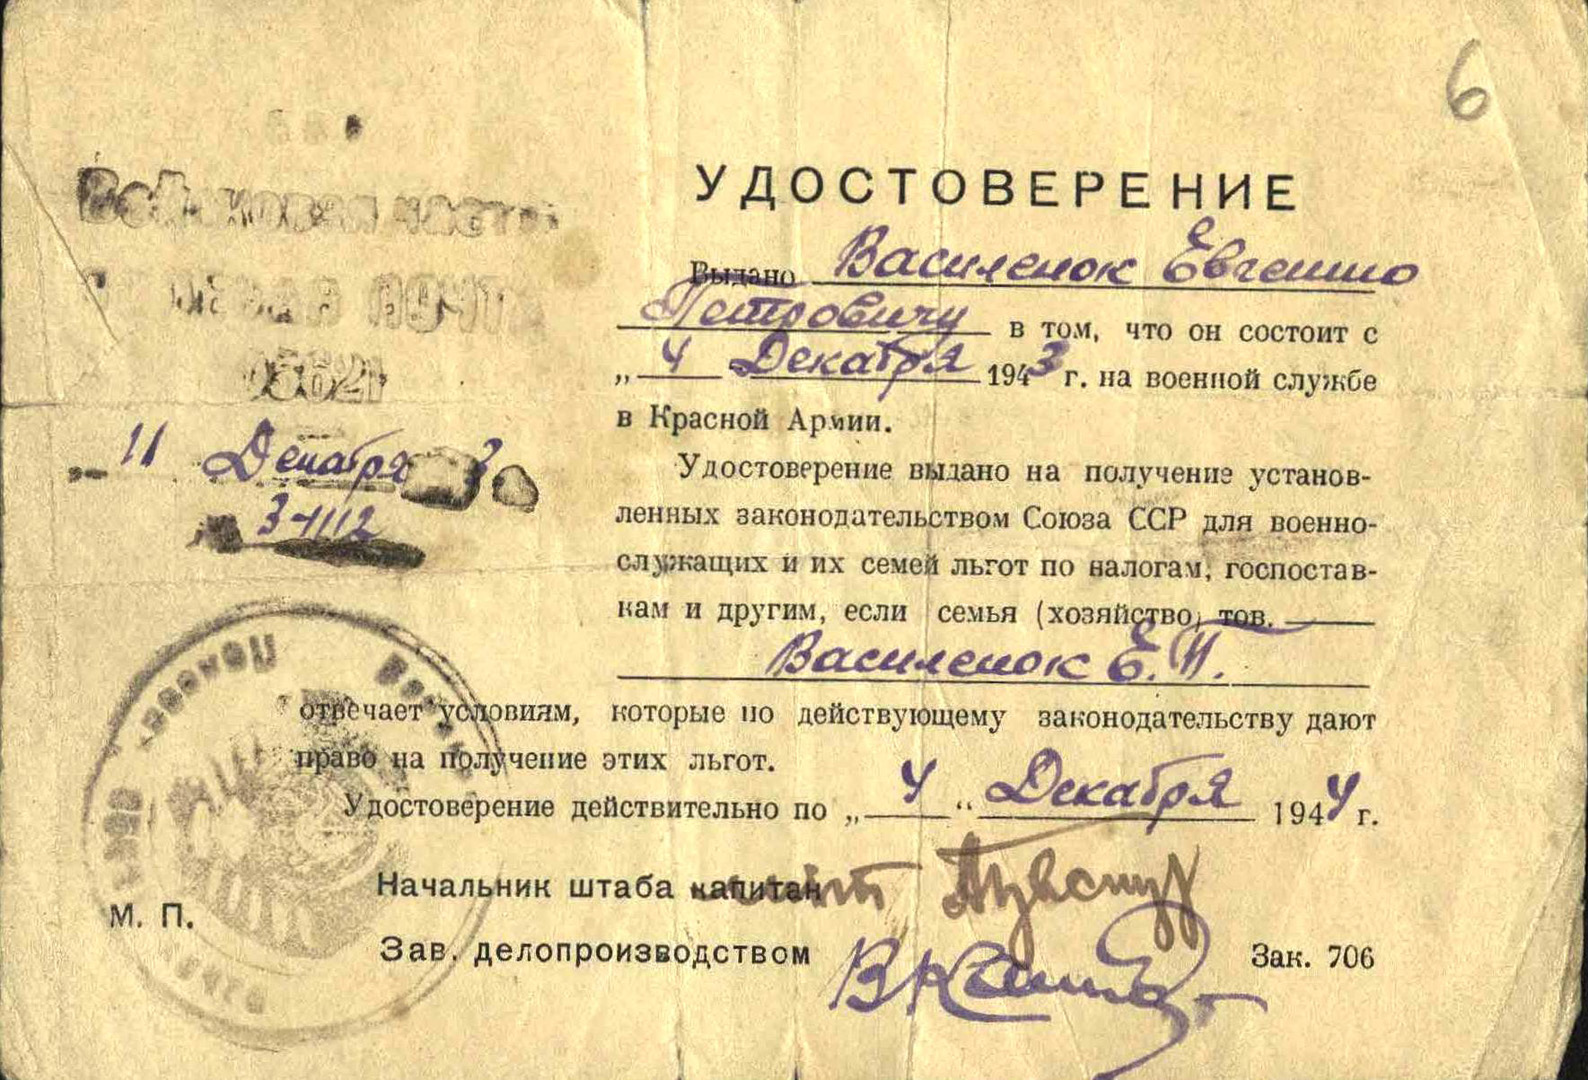 6
Войсковая часть
Полевая почта
УДОСТОВЕРЕНИЕ
Выдано Василенок Евгению
Петровичу в том, что он состоит с
„ 4 Декабря 1943 г. на военной службе
в Красной Армии.
11 Декабря 3
3-1112
Удостоверение выдано на получение установ-
ленных законодательством Союза ССР для военно-
служащих и их семей льгот по налогам, госпостав-
кам и другим, если семья (хозяйство) тов.
Василенок Е.П.
отвечает условиям, которые по действующему законодательству дают
право на получение этих льгот.
Удостоверение действительно по „ 4 “ Декабря 1944 г.
Начальник штаба капитан
М. П.
Зав. делопроизводством
Зак. 706